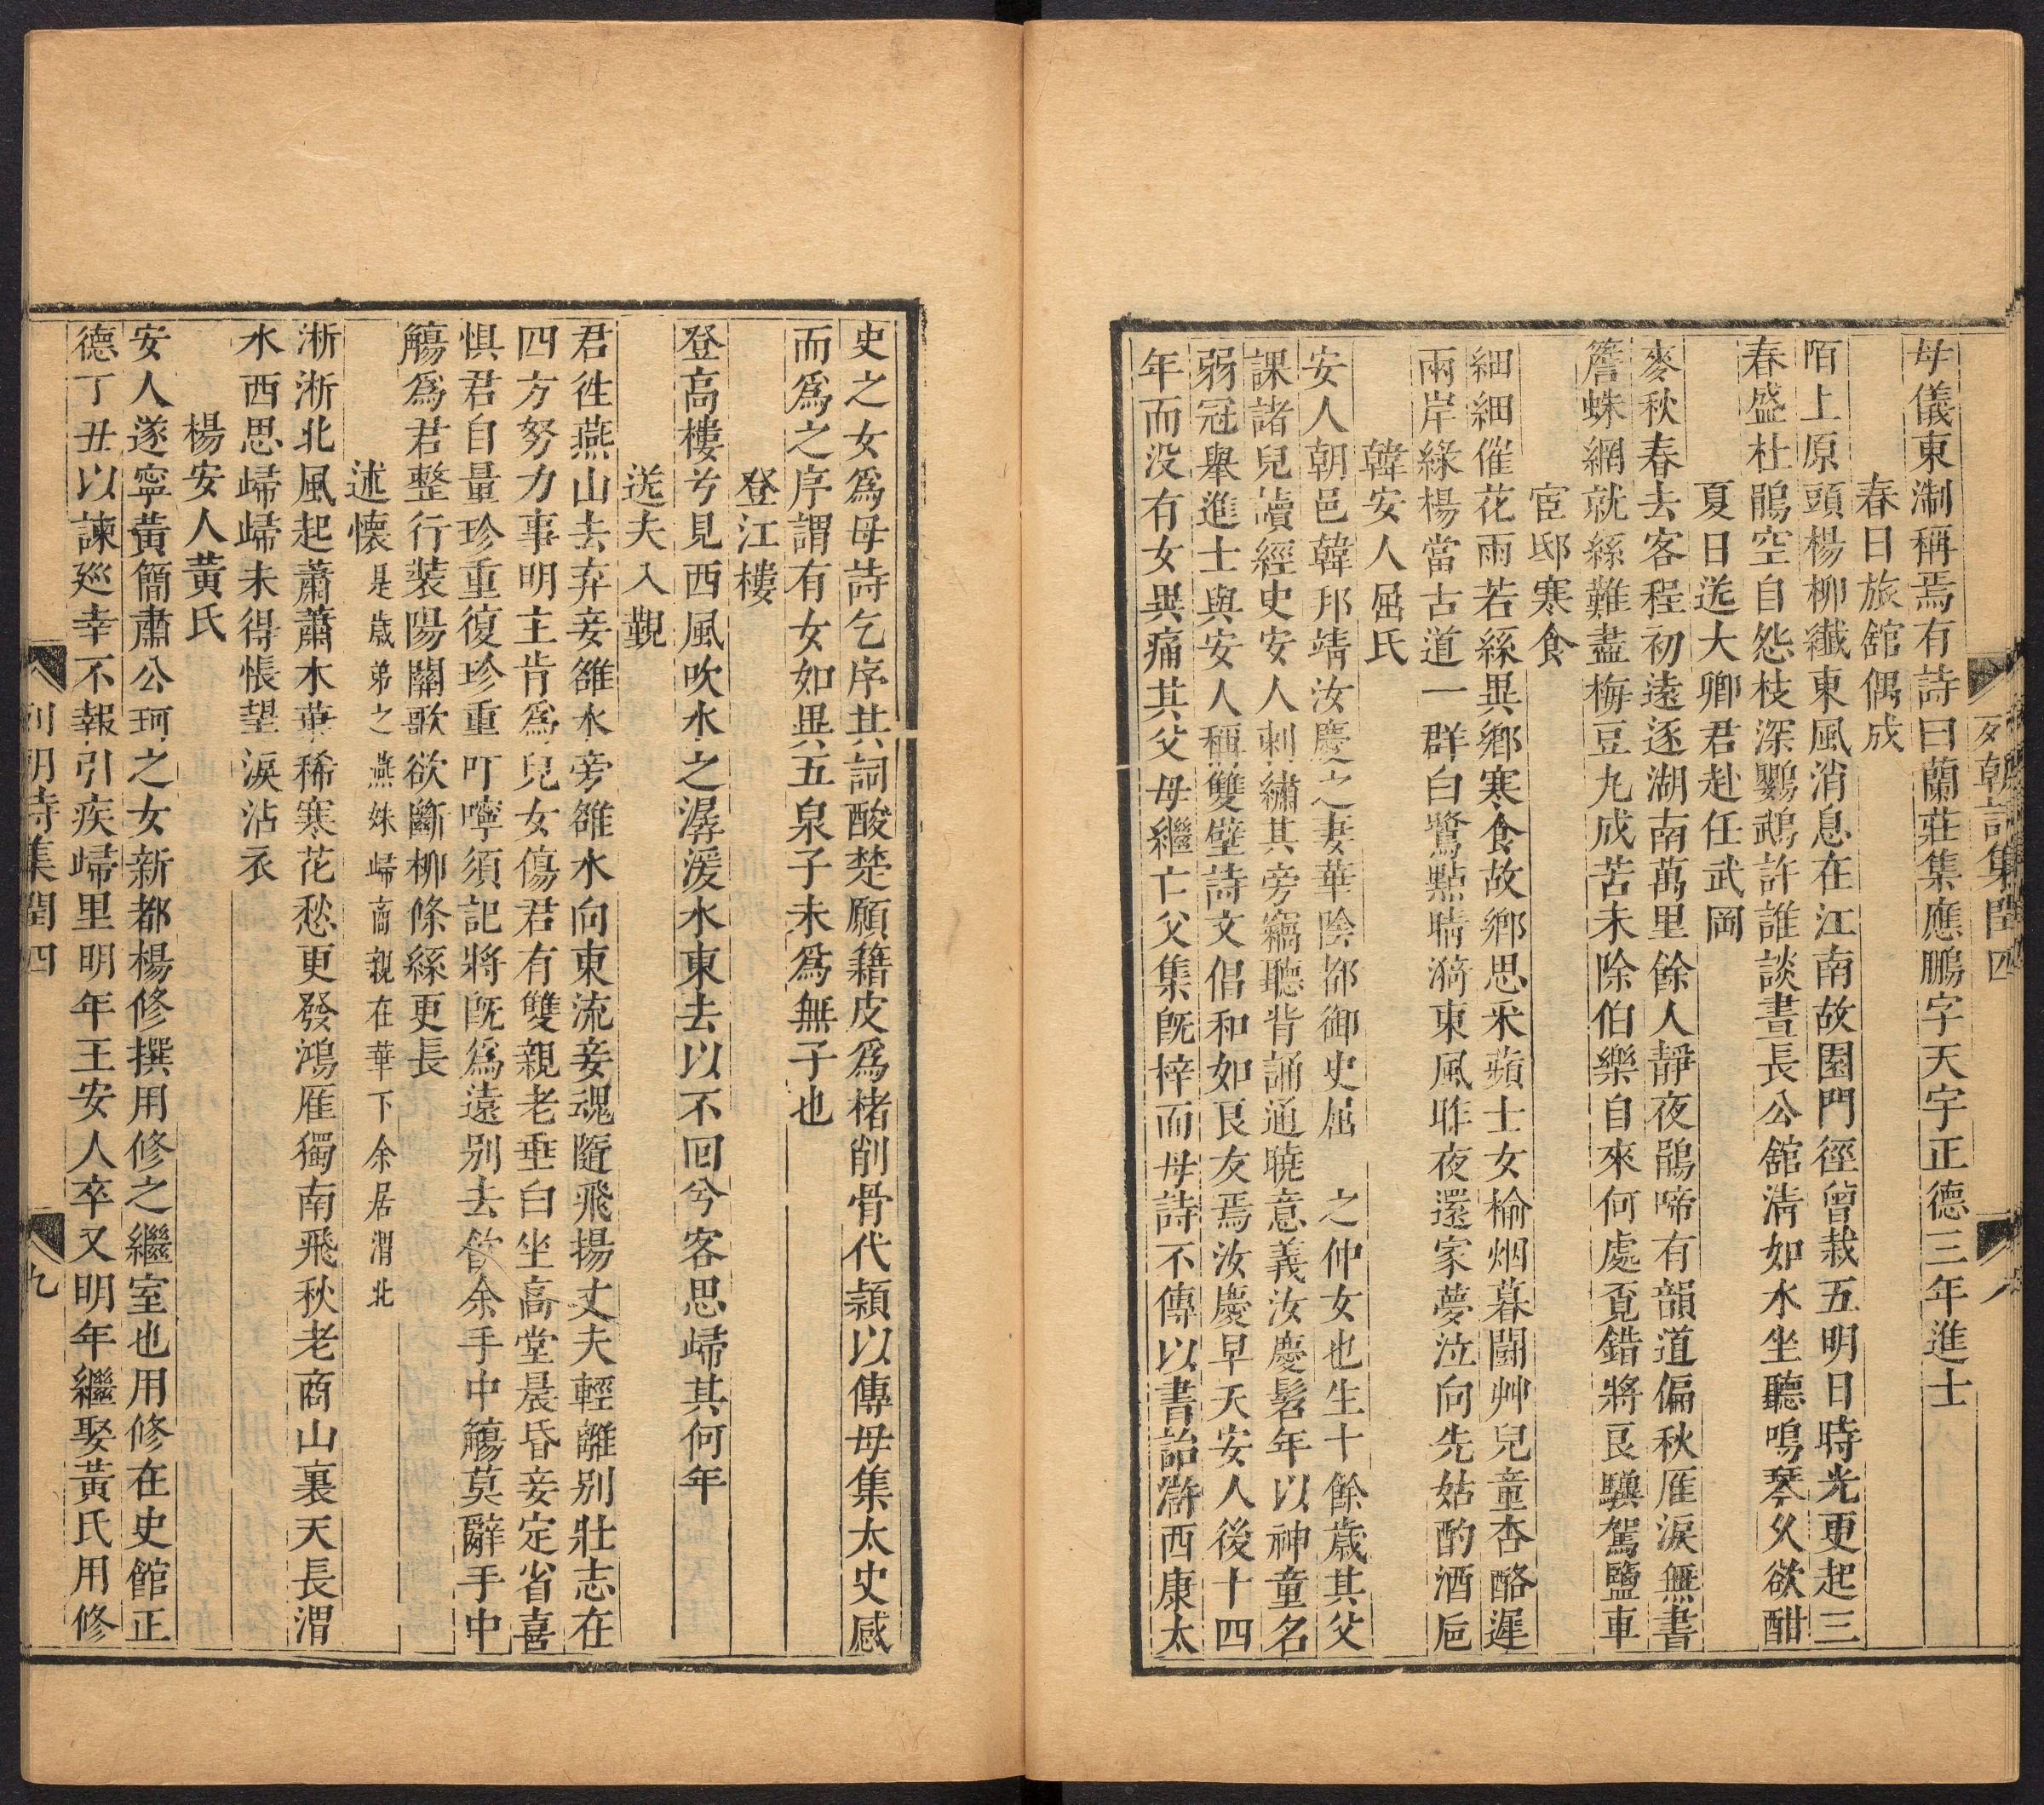 列朝詩集閏四
母儀東淛稱焉有詩曰蘭莊集應鵬字天宇正德三年進士
春日旅舘偶成
陌上原頭楊柳纖東風消息在江南故園門徑曾栽五明日時光更起三
春盛杜鵑空自怨枝深鸚鵡許誰談晝長公舘淸如水坐聽鳴琴久欲酣
夏日送大卿君赴任武岡
麥秋春去客程初遠逐湖南萬里餘人靜夜鵑啼有韻道偏秋雁淚無書
簷蛛網就絲難盡梅豆丸成苦未除伯樂自來何處覓錯將良驥駕鹽車
宦邸寒食
細細催花雨若絲異鄉寒食故鄉思采蘋士女榆烟暮鬭艸兒童杏酪遲
兩岸綠楊當古道一群白鷺點晴漪東風昨夜還家夢泣向先姑酌酒巵
韓安人屈氏
安人朝邑韓邦靖汝慶之妻華陰都御史屈 之仲女也生十餘歲其父
課諸兒讀經史安人刺繡其旁竊聽背誦通曉意義汝慶髫年以神童名
弱冠舉進士與安人稱雙璧詩文倡和如良友焉汝慶早夭安人後十四
年而没有女異痛其父母繼亡父集旣梓而母詩不傳以書詒滸西康太
史之女爲母詩乞序其詞酸楚願籍皮爲楮削骨代穎以傳母集太史感
而爲之序謂有女如異五泉子未爲無子也
登江樓
登高樓兮見西風吹水之潺湲水東去以不囘兮客思歸其何年
送夫入覲
君徃燕山去弃妾雒水旁雒水向東流妾魂隨飛揚丈夫輕離别壯志在
四方努力事明主肯爲兒女傷君有雙親老垂白坐高堂晨昏妾定省喜
惧君自量珍重復珍重叮嚀須記將旣爲遠别去飲余手中觴莫辭手中
觴爲君整行裝陽關歌欲斷柳條絲更長
述懷是歲弟之燕姝歸商親在華下余居渭北
淅淅北風起蕭蕭木葉稀寒花愁更發鴻雁獨南飛秋老商山裏天長渭
水西思歸歸未得悵望淚沾衣
楊安人黃氏
安人遂寧黃簡肅公珂之女新都楊修撰用修之繼室也用修在史館正
德丁丑以諫廵幸不報引疾歸里明年王安人卒又明年繼娶黃氏用修
列朝詩集閏四 九